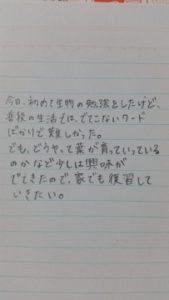 今日、初めて生物の勉強をしたけど、
普段の生活では、でてこないワード
ばかりで難しかった。
でも、どうやって葉が育っていっている
のかなど少しは興味が
でてきたので、家でも復習して
いきたい。